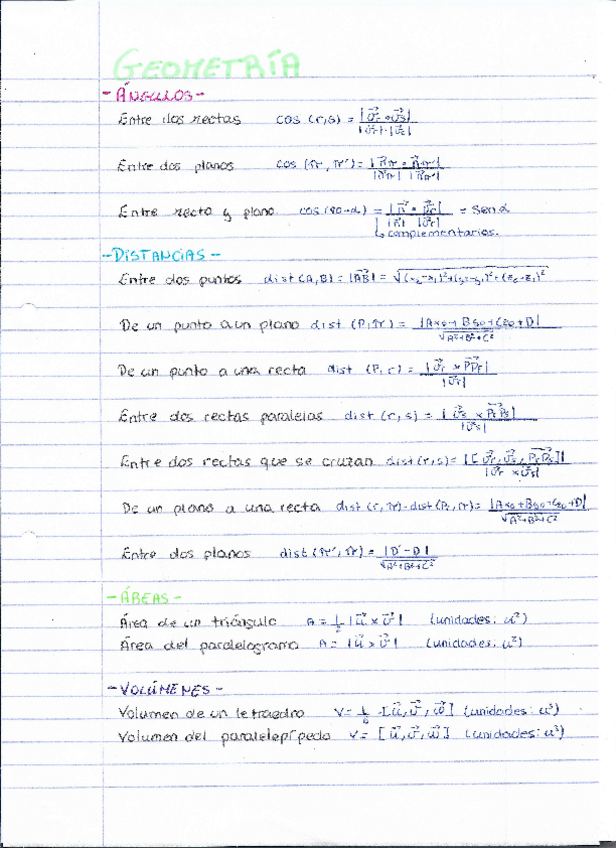 GEOMETRÍA
- ÁNGULOS -
Entre dos rectas cos (r,s) = |v⃗r • v⃗s| / |v⃗r| · |v⃗s|
Entre dos planos cos (π, π') = |n⃗π • n⃗π'| / |n⃗π| |n⃗π'|
Entre recta y plano cos (90-α) = |n⃗ • v⃗r| / |n⃗| |v⃗r| = sen α
↳ complementarios.
- DISTANCIAS -
Entre dos puntos dist (A,B) = |AB⃗| = √(x₂-x₁)²+(y₂-y₁)²+(z₂-z₁)²
De un punto a un plano dist (P,π) = |Ax₀+By₀+Cz₀+D| / √A²+B²+C²
De un punto a una recta dist (P,r) = |v⃗r × PPr⃗| / |v⃗r|
Entre dos rectas paralelas dist (r,s) = |v⃗s × PrPs⃗| / |v⃗s|
Entre dos rectas que se cruzan dist (r,s) = |[v⃗r, v⃗s, PrPs⃗]| / |v⃗r × v⃗s|
De un plano a una recta dist (r,π) = dist (Pr,π) = |Ax₀+By₀+Cz₀+D| / √A²+B²+C²
Entre dos planos dist (π',π) = |D'-D| / √A²+B²+C²
- ÁREAS -
Área de un triángulo A = 1/2 |u⃗ × v⃗| (unidades: u²)
Área del paralelogramo A = |u⃗ × v⃗| (unidades: u²)
- VOLÚMENES -
Volumen de un tetraedro V = 1/6 · [u⃗, v⃗, w⃗] (unidades: u³)
Volumen del paralelepípedo V = [u⃗, v⃗, w⃗] (unidades: u³)